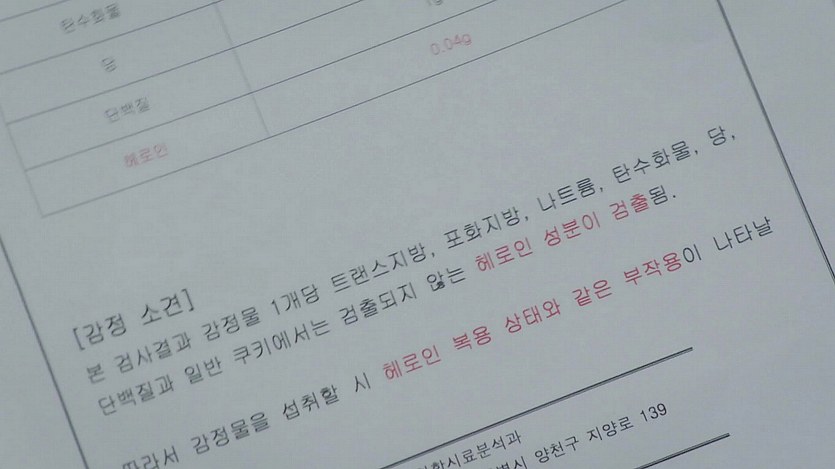 탄수화물
당 1g
단백질 0.04g
헤로인
[감정 소견]
본 검사결과 감정물 1개당 트랜스지방, 포화지방, 나트륨, 탄수화물, 당,
단백질과 일반 쿠키에서는 검출되지 않는 헤로인 성분이 검출됨.
따라서 감정물을 섭취할 시 헤로인 복용 상태와 같은 부작용이 나타날
양천구 지양로 139